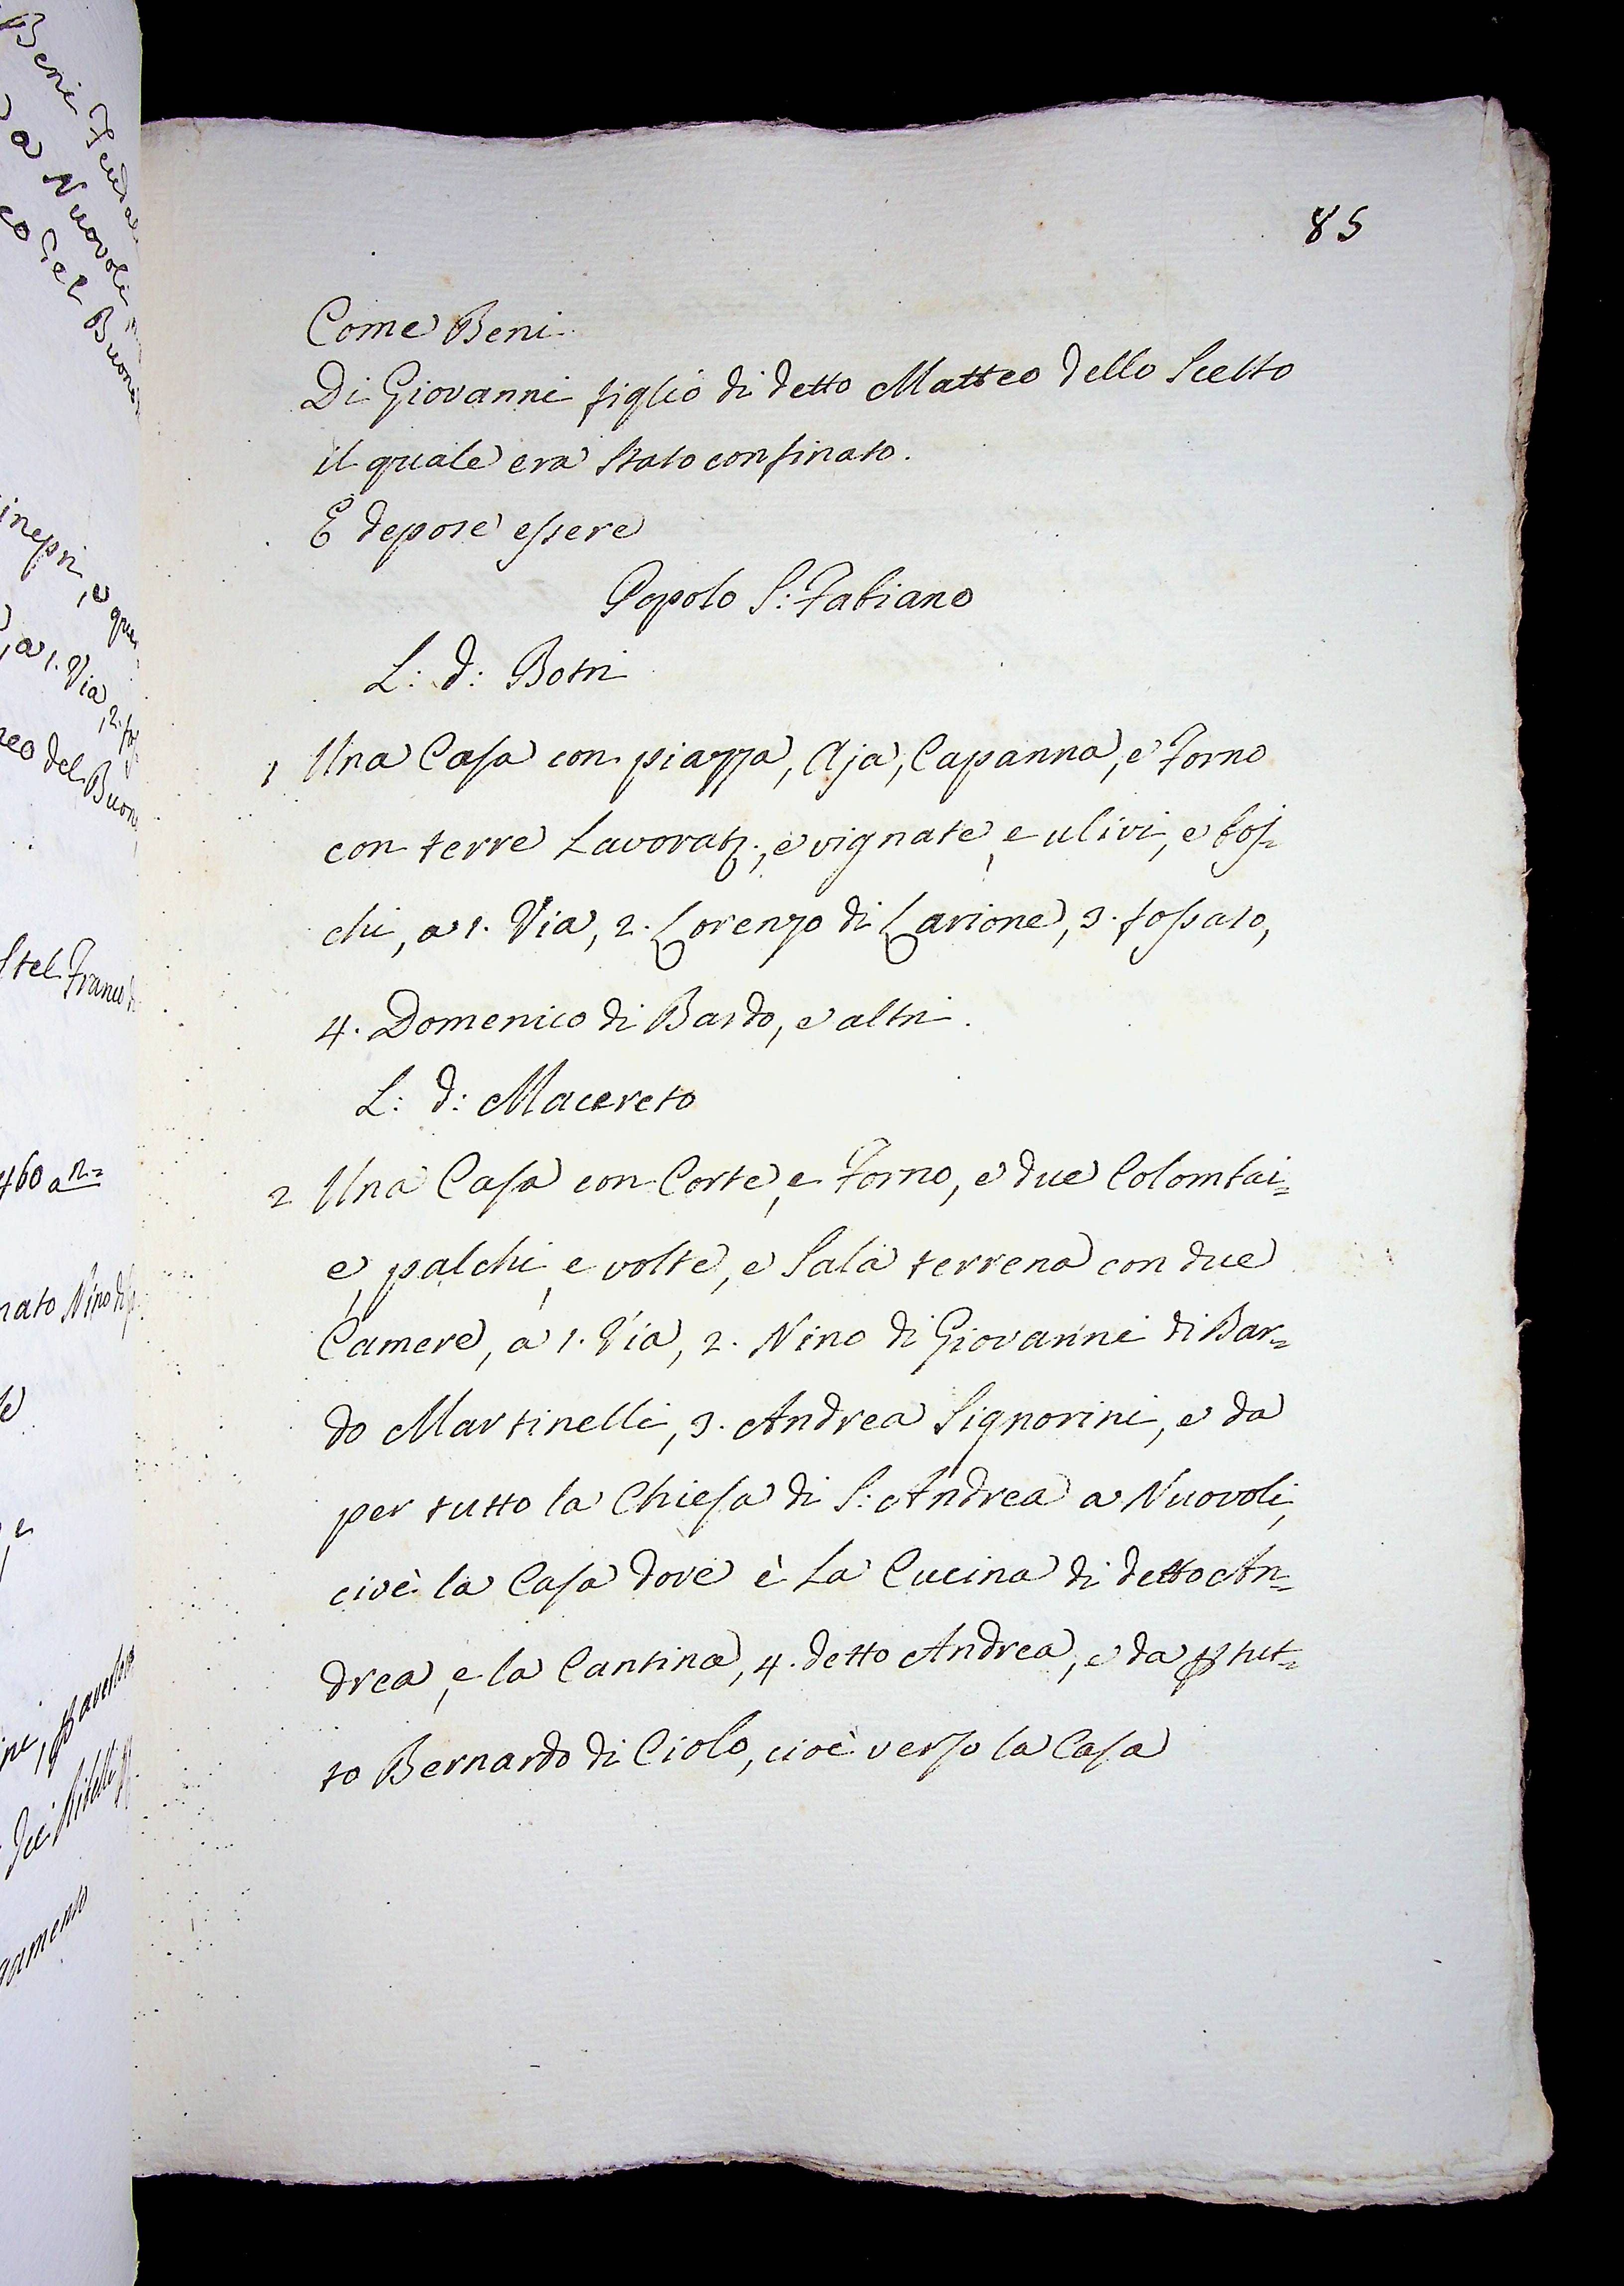 85
Come Beni
Di Giovanni figlio di detto Matteo dello Scelto
il quale era stato confinato.
E depose essere
Popolo S: Fabiano
L: d: Botri
1 Una Casa con piazza, Aja, Capanna, e Forno
con terre Lavorat:, e vignate, e ulivi, e bos=
chi, a 1. Via, 2. Lorenzo di Larione, 3. fossato,
4. Domenico di Bardo, e altri.
L: d: Macereto
2 Una Casa con Corte, e Forno, e due Colombai=
e, palchi, e volte, e Sala terrena con due
Camere, a 1. Via, 2. Nino di Giovanni di Bar=
do Martinelli, 3. Andrea Signorini, e da
per tutto la Chiesa di S: Andrea a Nuovoli,
cioè la Casa dove è La Cucina di detto An=
drea, e la Cantina, 4. detto Andrea, e da ꝑ tut=
to Bernardo di Ciolo, cioè verso la Casa